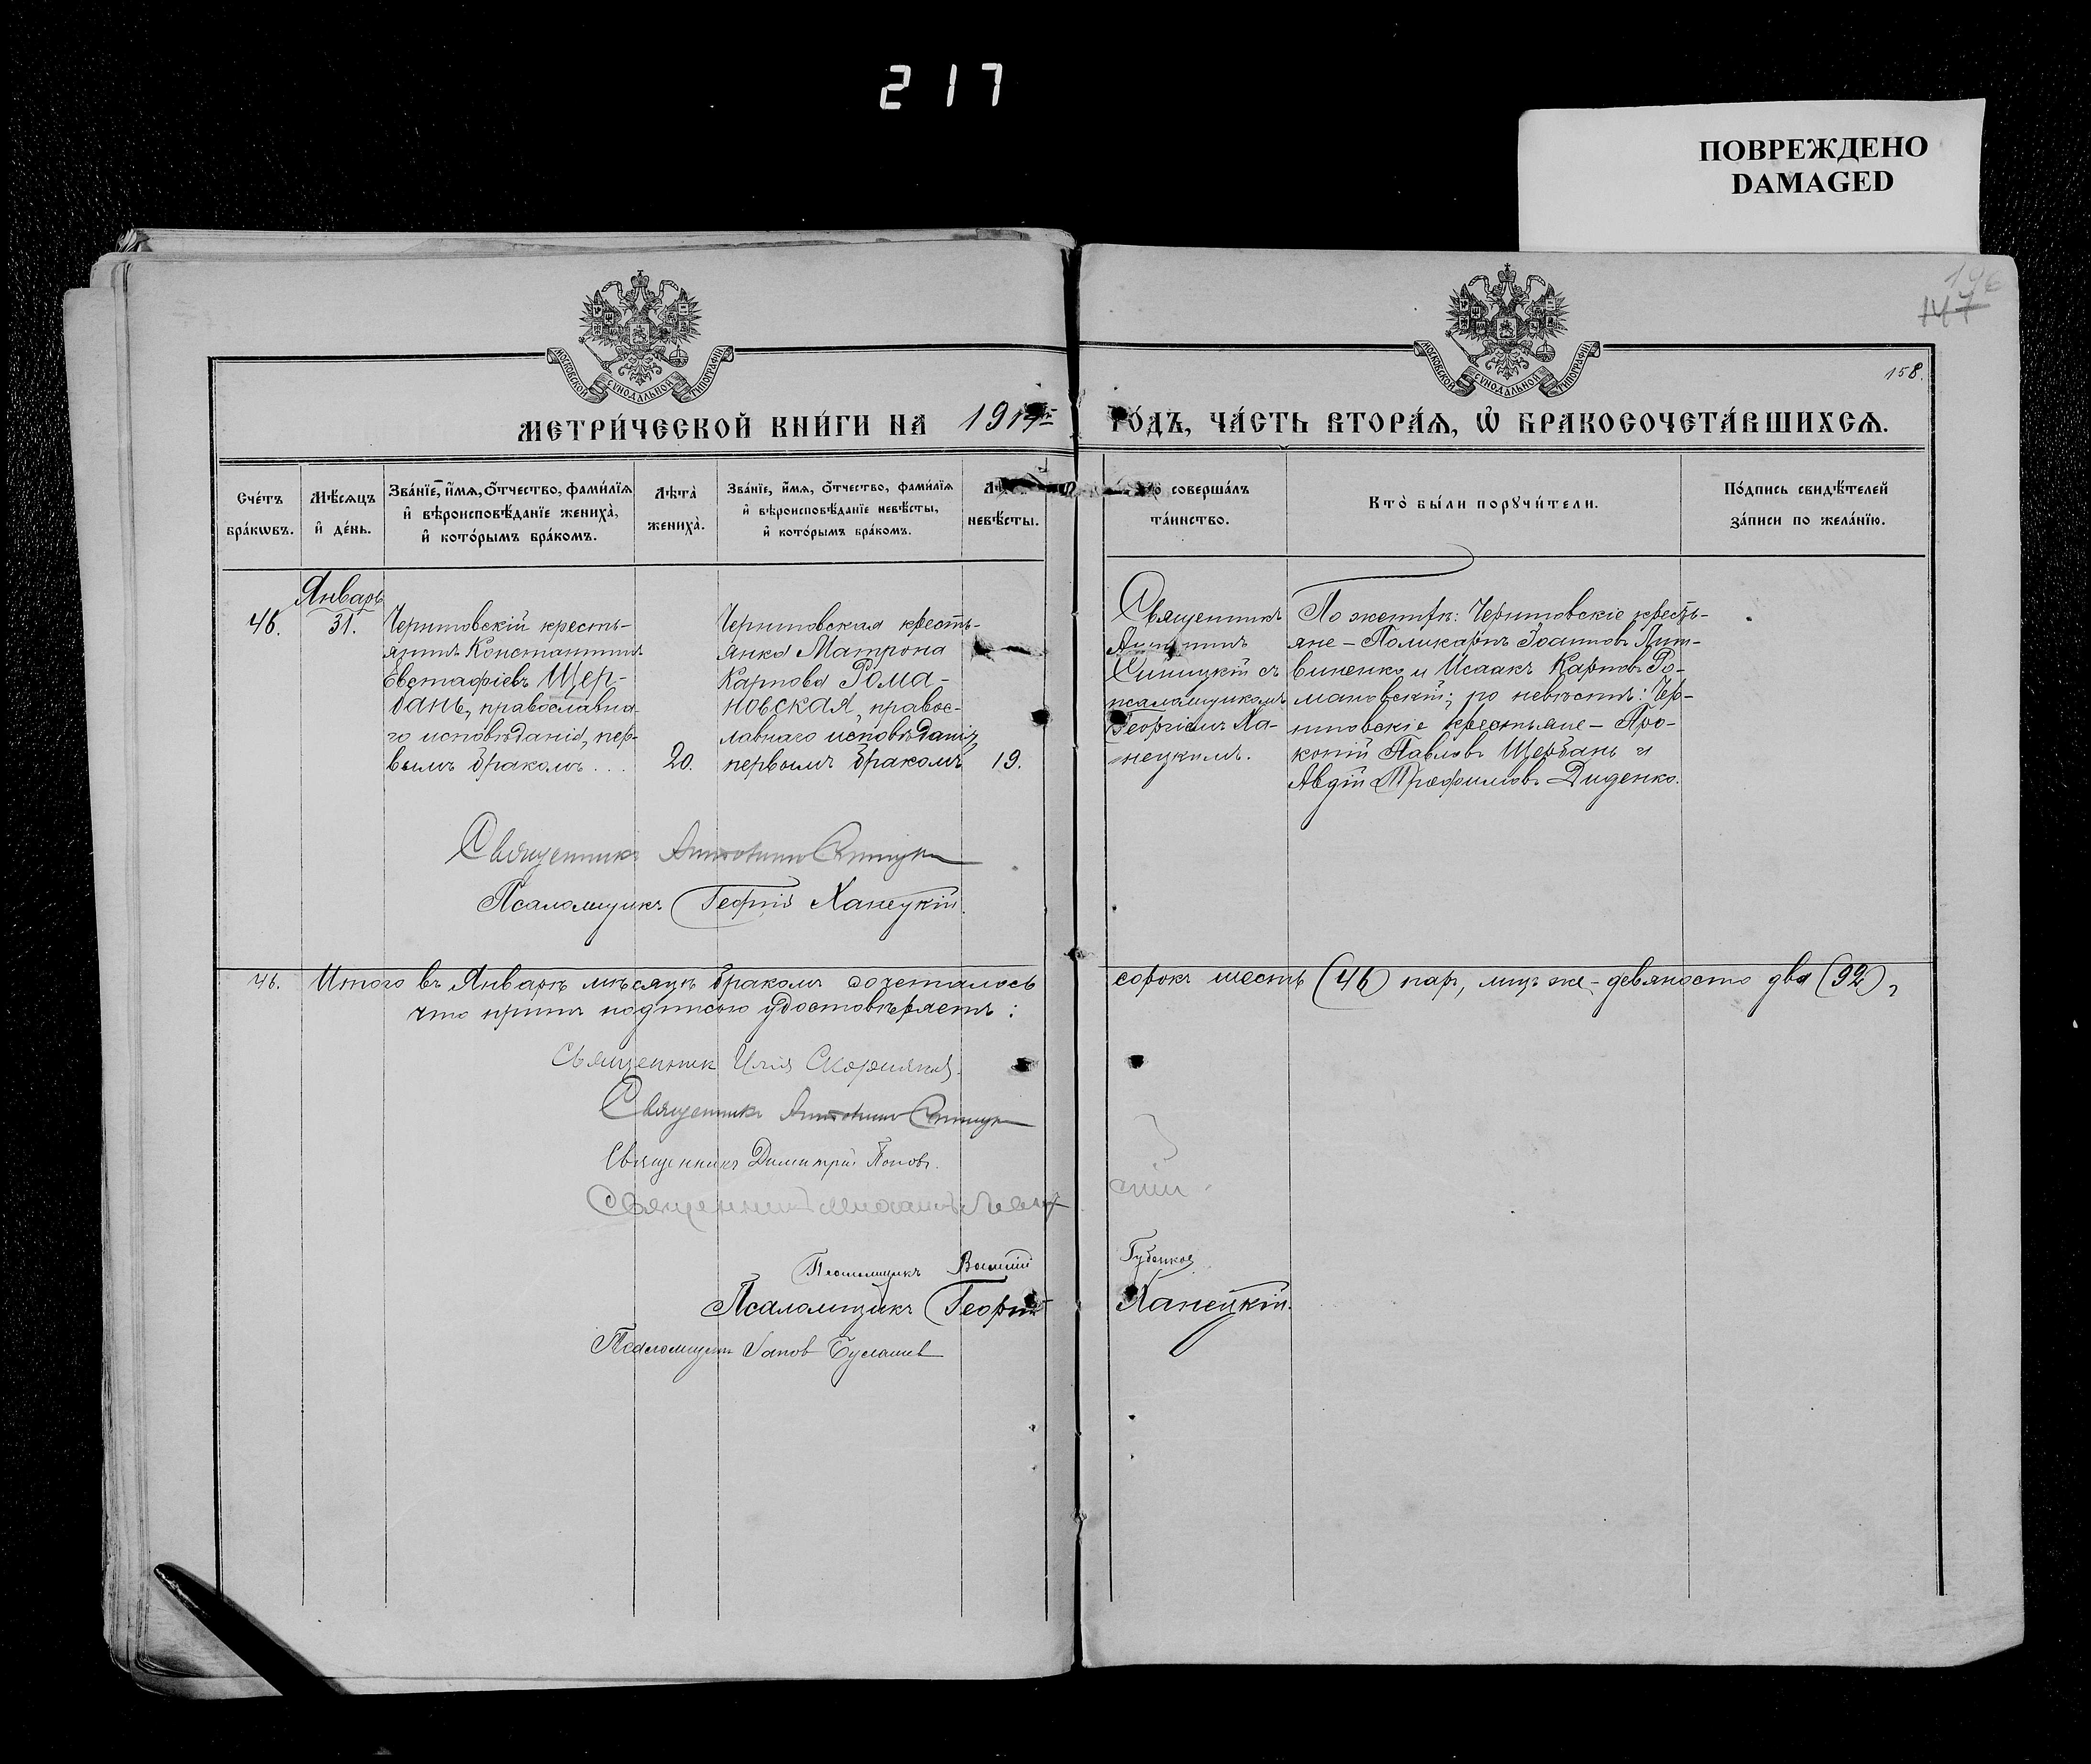 217
ПОВРЕЖДЕНО
DAMAGED
147
158.
МОСКОВСКОЙ СУНОДАЛЬНОЙ ТИПОГРАФІИ
МОСКОВСКОЙ СУНОДАЛЬНОЙ ТИПОГРАФІИ
МЕТРИ́ЧЕСКОЙ КНИ́ГИ НА
ГО́ДЪ, ЧА́СТЬ ВТОРА́Я, Ѡ БРАКОСОЧЕТА́ВШИХСЯ.
Сче́тъ
бра́кѡвъ.
Мѣ́сяцъ
и де́нь.
Зва́нїе, и́мя, ѻ́тчество, фами́лїя
и вѣроисповѣ́данїе жениха̀,
и кото́рымъ бра́комъ.
Лѣта̀
жениха̀.
Зва́нїе, и́мя, ѻ́тчество, фами́лїя
и вѣроисповѣ́данїе невѣ́сты,
и кото́рымъ бра́комъ.
невѣ́сты.
соверша́лъ
та́инство.
Кто̀ бы́ли порꙋчи́тели.
По́дпись свидѣ́телей
за́писи по жела́нїю.
Январь
46.
31.
Черниговскій кресть-
янинъ Константинъ
Евстафіевъ Щер-
бань, православна-
го исповѣданія, пер-
вымъ бракомъ...
20.
кресть-
янка Матрона
Карпова Рома-
новская, правос-
лавнаго исповѣданія,
первымъ бракомъ
19.
Священникъ
Синицкій съ
псаломщикомъ
Георгіемъ Ха-
нецкимъ.
По женихѣ: кресть-
яне – Поликарпъ Іоанновъ Лит-
виненко и Исаакъ Карповъ Ро-
мановскій; по невѣстѣ: Чер-
крестьяне – Про-
копій Павловъ Щербань и
Авдій Трофимовъ Диденко.
Священникъ
Псаломщикъ Георгій Ханецкій.
46.
Итого въ Январѣ мѣсяцѣ бракомъ сочеталось
сорокъ шесть (46) паръ, лицъ же – девяносто два (92),
что причтъ подписью удостовѣряетъ:
Священникъ Илія
Священникъ
Священникъ Димитрій Поповъ.
Священникъ
Псаломщикъ
Псаломщикъ Георгій
Ханецкій.
Псаломщикъ